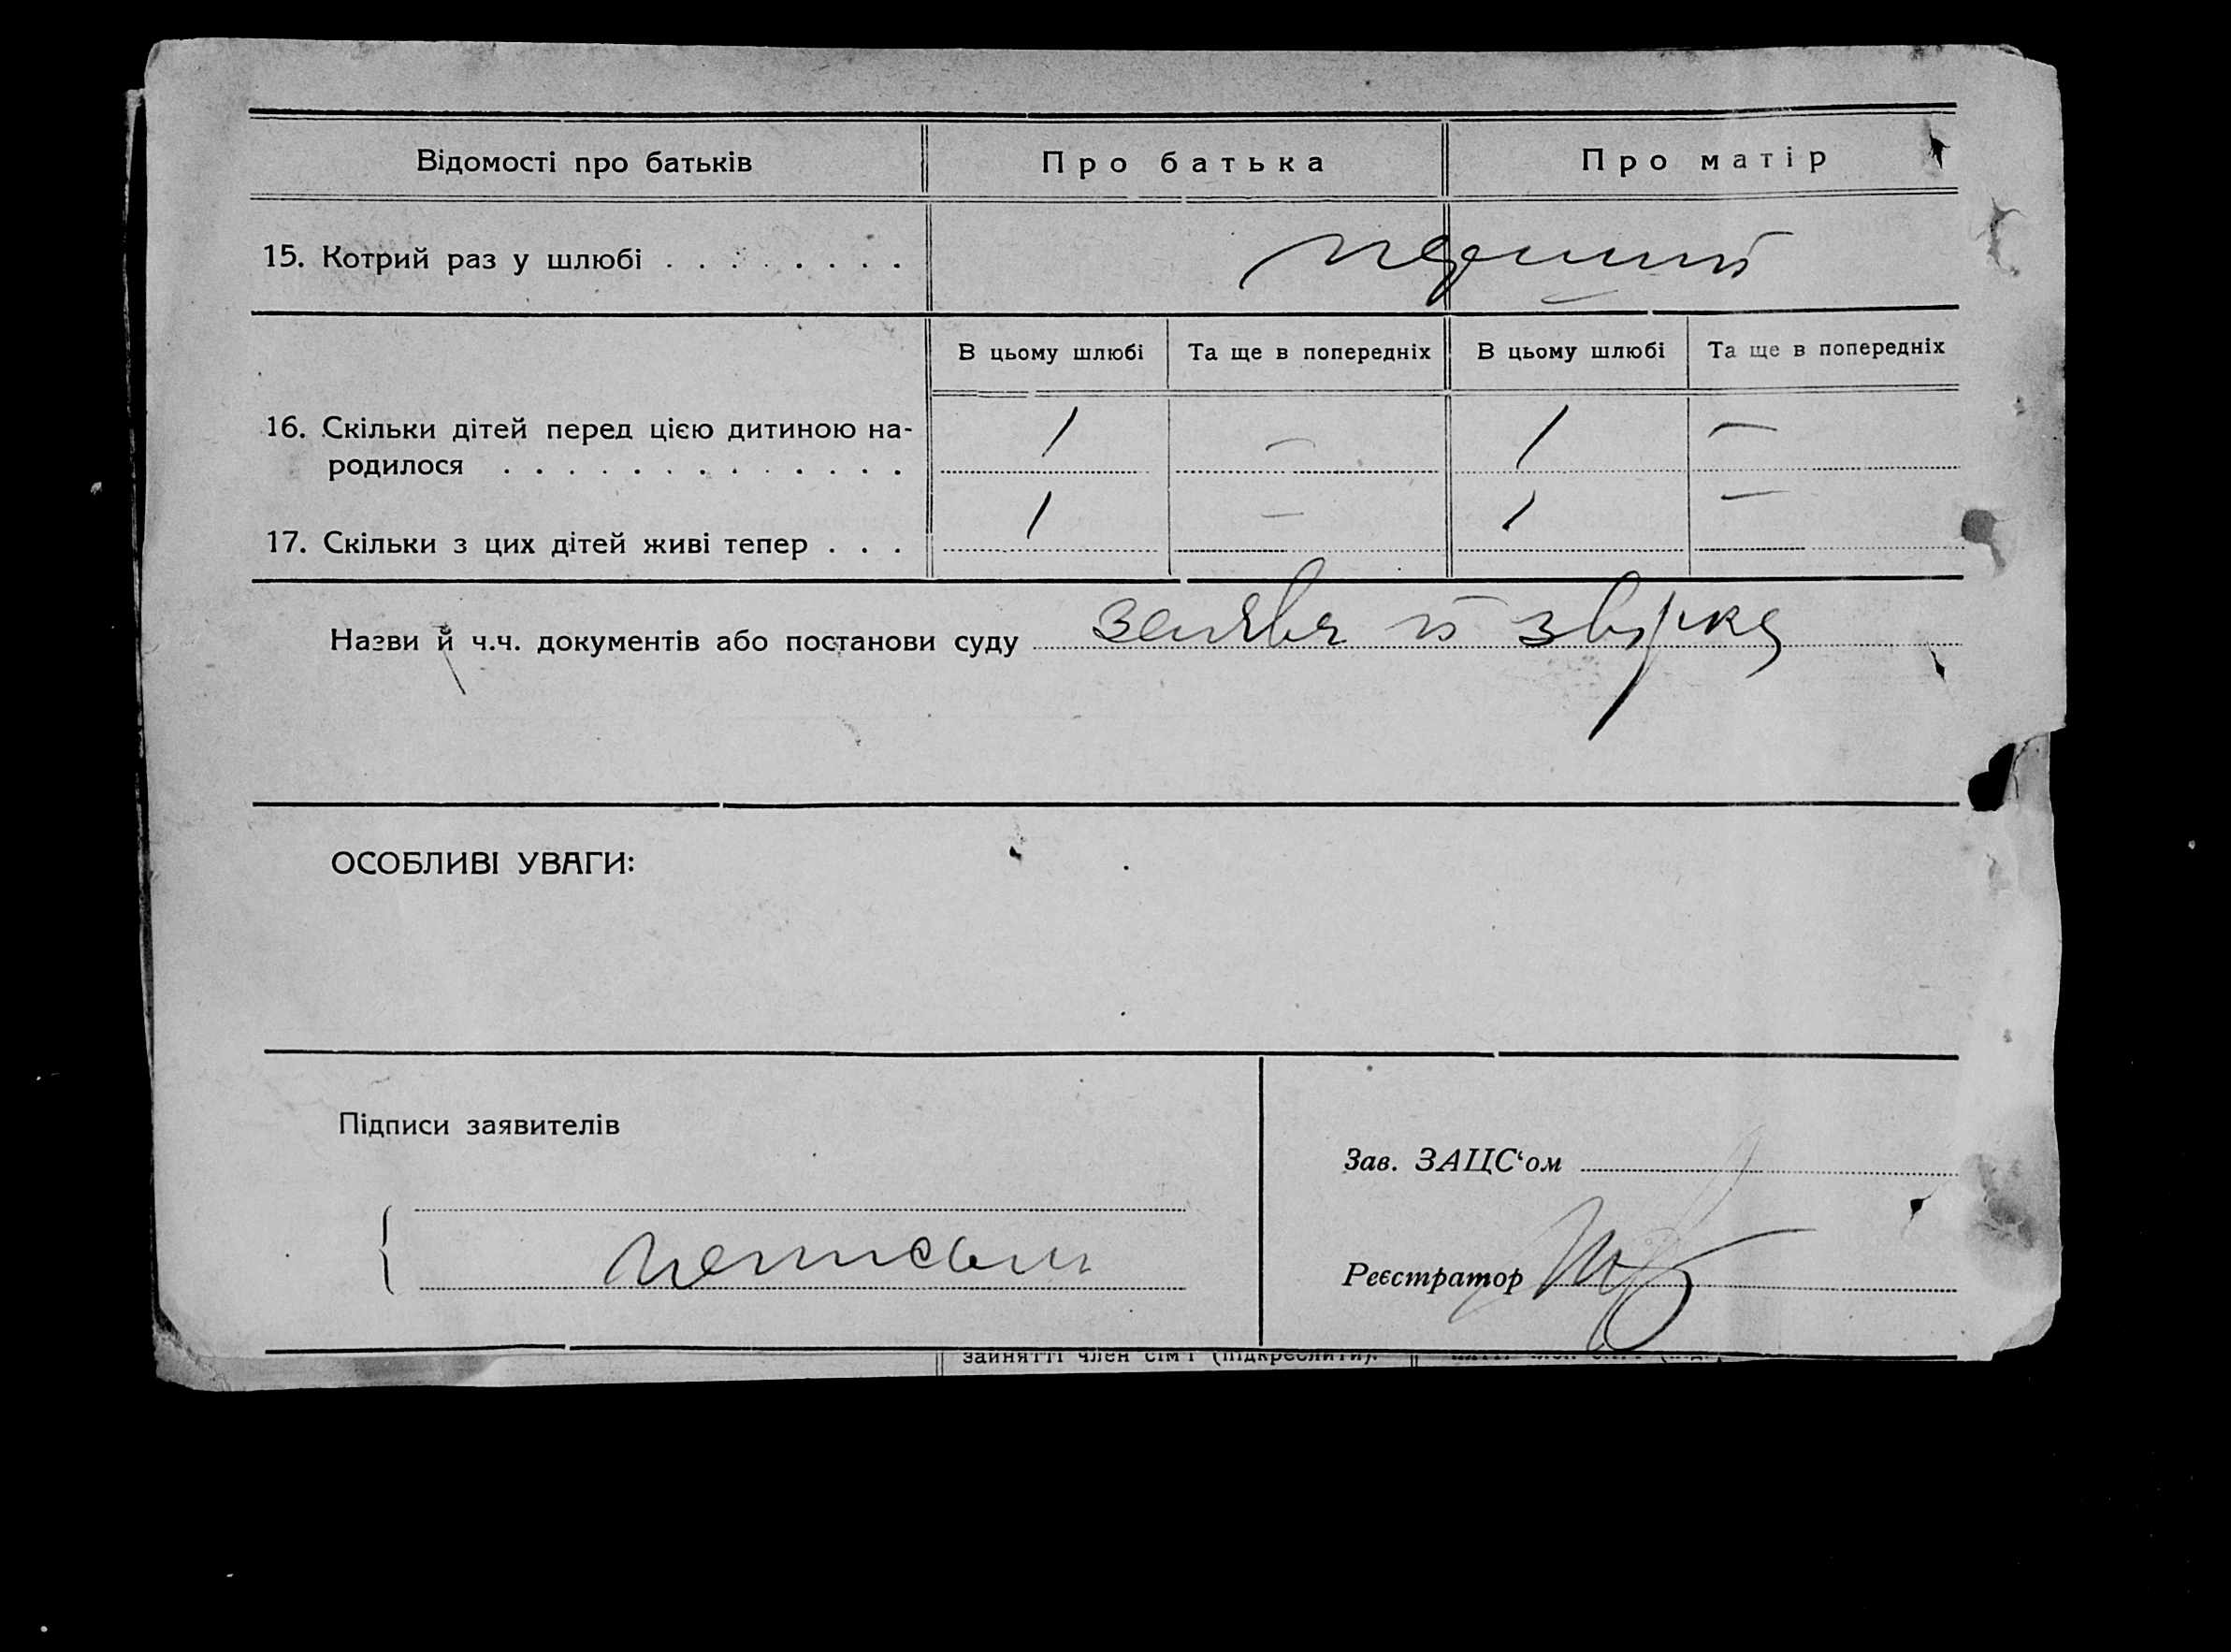 Відомості про батьків Про батька Про матір
15. Котрий раз у шлюбі . . . . . . . . перший
В цьому шлюбі Та ще в попередніх В цьому шлюбі Та ще в попередніх
16. Скільки дітей перед цією дитиною на- 1 — 1 —
родилося . . . . . . . . . . . . .
17. Скільки з цих дітей живі тепер . . . 1 — 1 —
Назви й ч.ч. документів або постанови суду заява й
ОСОБЛИВІ УВАГИ:
Підписи заявителів
Зав. ЗАЦС‘ом
Реєстратор
зайнятті член сім'ї (підкреслити).